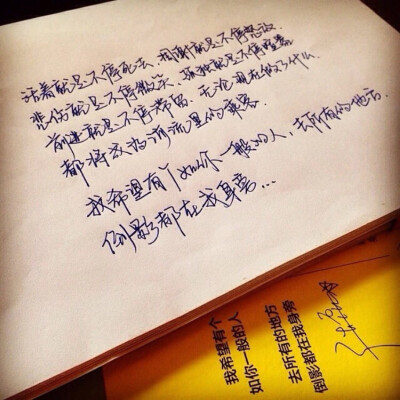 活着就是不停死去，就是不停怒放，
悲伤就是不停微笑，孤独就是不停喧嚣
前进就是不停，无论现在做了什么，
都将成为流里的乘客
我希望有个如你一般的人，去所有的地方，
倒影都在我身旁…
我希望有个
如你一般的人
去所有的地方
倒影都在我身旁